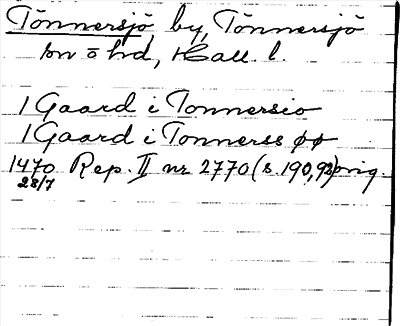 Tönnersjö by, Tönnersjö
sn o hd, Hall. l.
1 Gaard i Tonnersio
1 Gaard i Tonnerss øø
1470 Rep. II nr 2770 (s. 190, 92) orig.
28/7